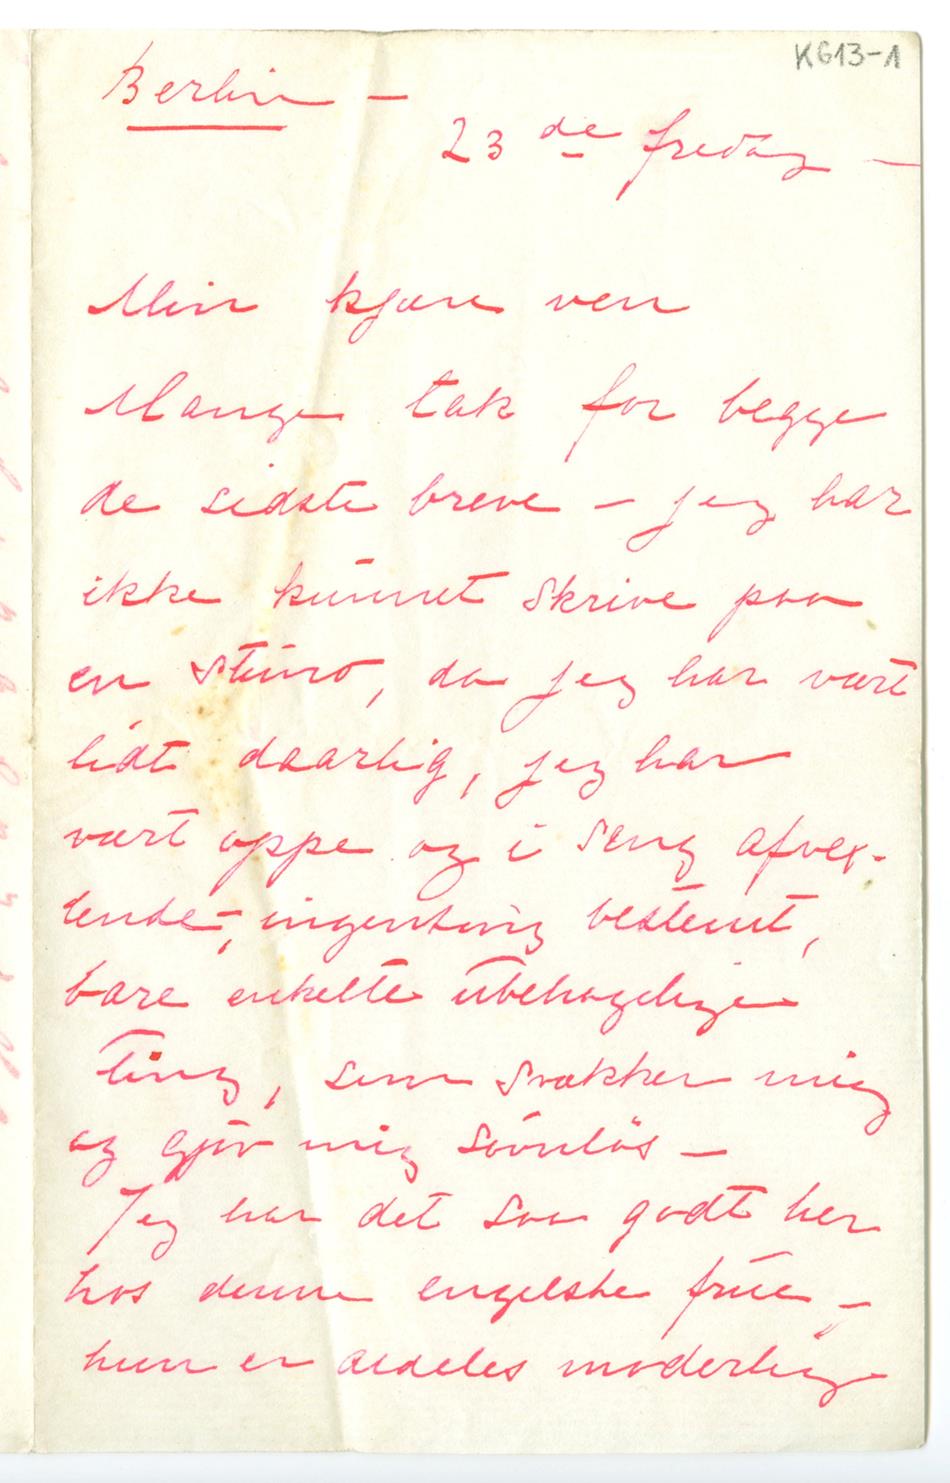 K613-1
Berlin –
23 de fredag –
Min kjære ven
Mange tak for begge
de sidste breve – jeg har
ikke kunnet skrive paa
en stund, da jeg har vært
lidt daarlig, jeg har
vært oppe og i seng afvex-
lende –, ingenting bestemt,
bare enkelte ubehagelige
Ting, som svækker mig
og gjør mig søvnløs –
Jeg har det saa godt her
hos denne engelske frue –
hun er aldeles moderlig